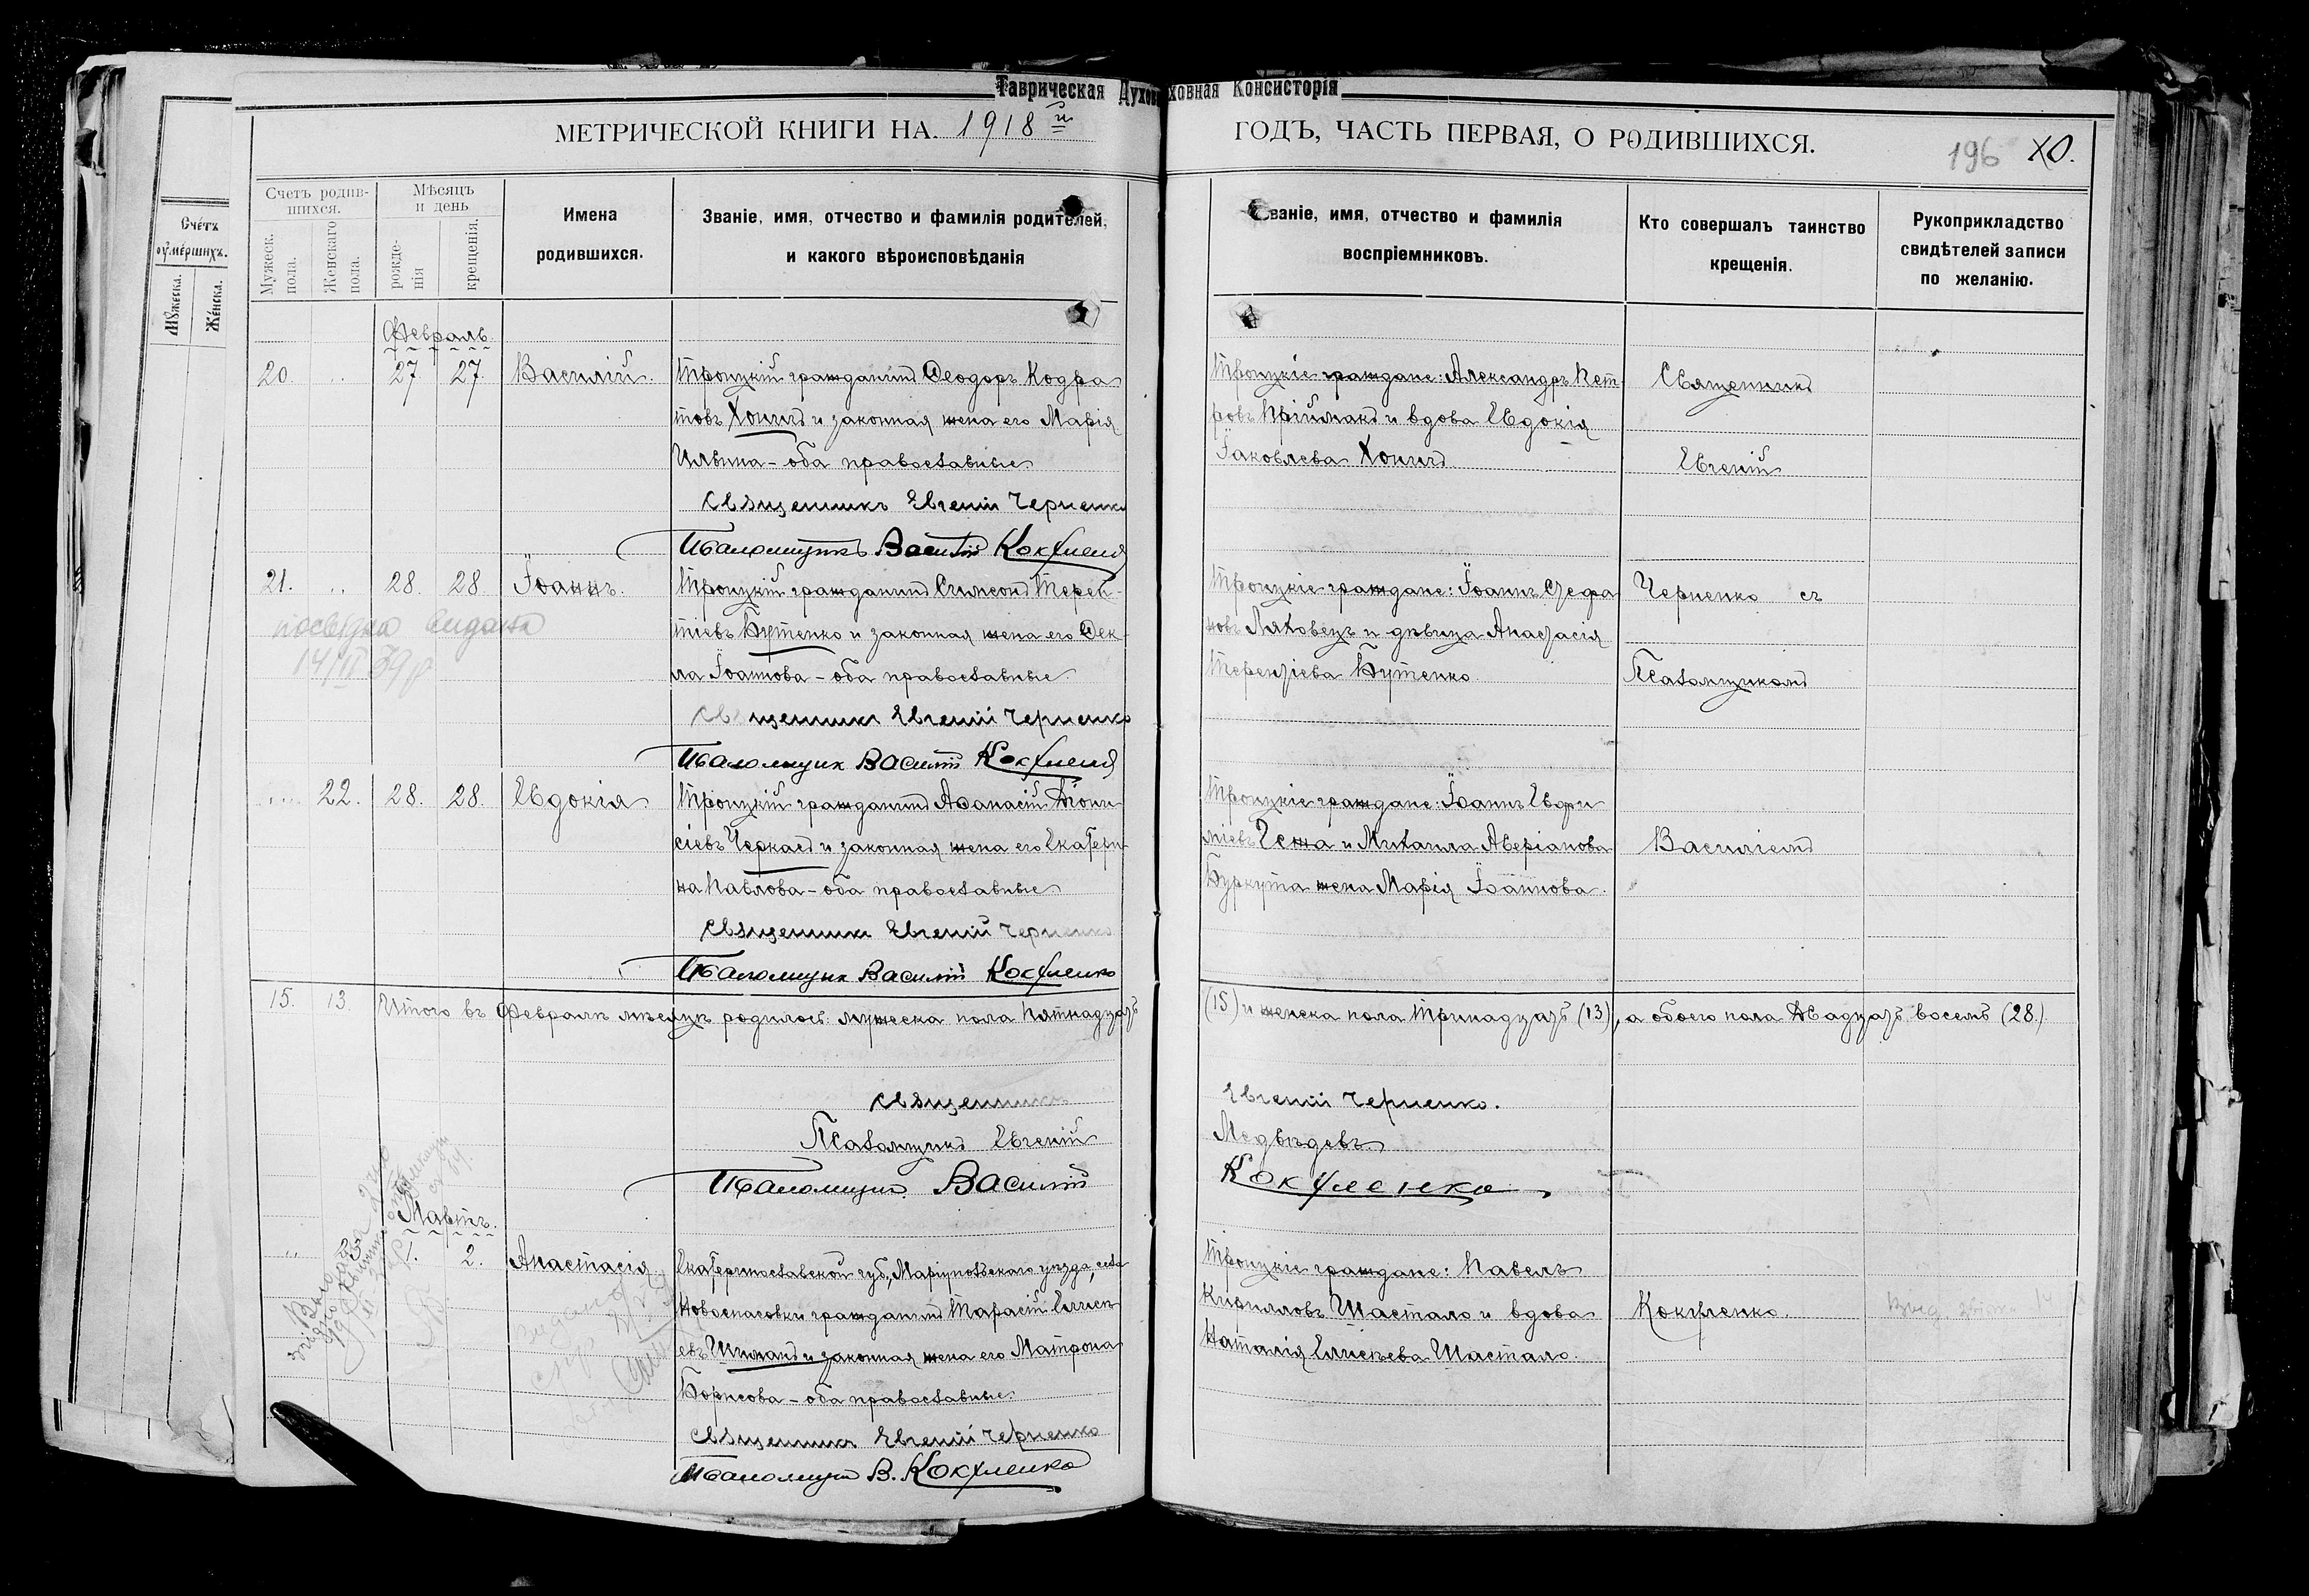 Таврическая Духовная Консисторія
МЕТРИЧЕСКОЙ КНИГИ НА 1918й ГОДЪ, ЧАСТЬ ПЕРВАЯ, О РОДИВШИХСЯ.
196
Счетъ родившихся.
Мужеск. пола.
Женскаго пола.
Мѣсяцъ и день
рожденія
крещенія.
Имена родившихся.
Званіе, имя, отчество и фамилія родителей,
и какого вѣроисповѣданія
Званіе, имя, отчество и фамилія
воспріемниковъ.
Кто совершалъ таинство
крещенія.
Рукоприкладство
свидѣтелей записи
по желанію.
Счéтъ
оумéршихъ.
Мꙋжеска.
Жéнска.
Февраль
20. 27. 27. Василій.
Троицкій гражданинъ Ѳеодоръ Кодра
товъ и законная жена его Марія
Ильина - оба православные
Священникъ Евгеній Черненко
Псаломщикъ Василій Кокуленко
Троицкіе граждане: Александръ Пет
ровъ Пріймакъ и вдова Евдокія
Іаковлева
Священникъ
Евгеній
21. 28. 28. Іоаннъ.
посвідка видана
14/II 39 р
Троицкій гражданинъ Симеонъ Терен-
тіевъ Бутенко и законная жена его Ѳек-
ла Іоаннова - оба православные
Священникъ Евгеній Черненко
Псаломщикъ Василій Кокуленко
Троицкіе граждане: Іоаннъ Стефа
новъ Ляховецъ и дѣвица Анастасія
Терентіева Бутенко.
Черненко съ
Псаломщикомъ
22. 28. 28. Евдокія
Троицкій гражданинъ Аѳанасій Діони
сіевъ Черкасъ и законная жена его Екатери-
на Павлова - оба православные
Священникъ Евгеній Черненко
Псаломщикъ Василій Кокуленко
Троицкіе граждане: Іоаннъ Евфи
міевъ и Михаила Аверіанова
Буркута жена Марія Іоаннова.
Василіемъ
15. 13. Итого въ Февралѣ мѣсяцѣ родилось: мужеска пола Пятнадцать (15) и женска пола Тринадцать (13), а обоего пола Двадцать восемь (28).
Священникъ Евгеній Черненко.
Псаломщикъ Евгеній Медвѣдевъ
Псаломщикъ Василій Кокуленко
Мартъ.
1. 2. Анастасія
Екатеринославской губ., Маріупольскаго уѣзда, села
Новоспасовки гражданинъ Тарасій Елисѣ
евъ и законная жена его Матрона
Борисова - оба православные.
Священникъ Евгеній Черненко
Псаломщикъ В. Кокуленко
Троицкіе граждане: Павелъ
Кирилловъ Шастало и вдова
Наталія Елисѣева Шастало.
Кокуленко.